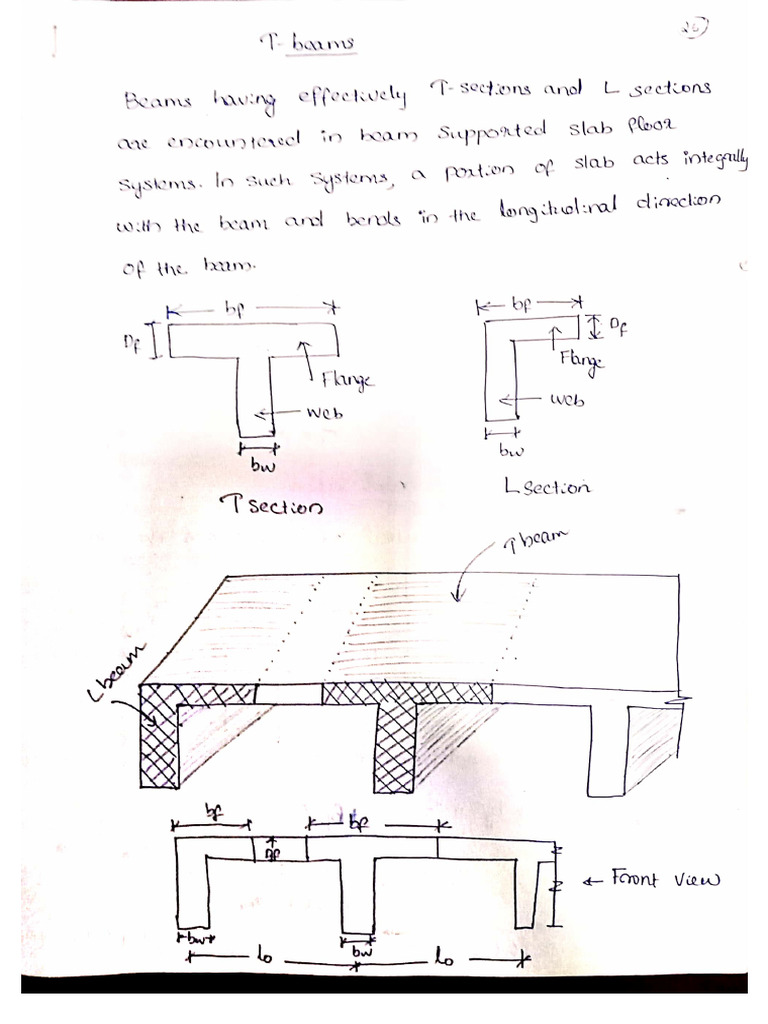 26
T-beams
Beams having effectively T-sections and L sections
are encountered in beam supported slab floor
systems. In such systems, a portion of slab acts integrally
with the beam and bends in the longitudinal direction
of the beam.
bf
bf
Df
Df
Flange
Flange
web
web
bw
bw
T section
L section
T beam
L beam
bf
bf
Df
← Front view
bw
bw
lo
lo